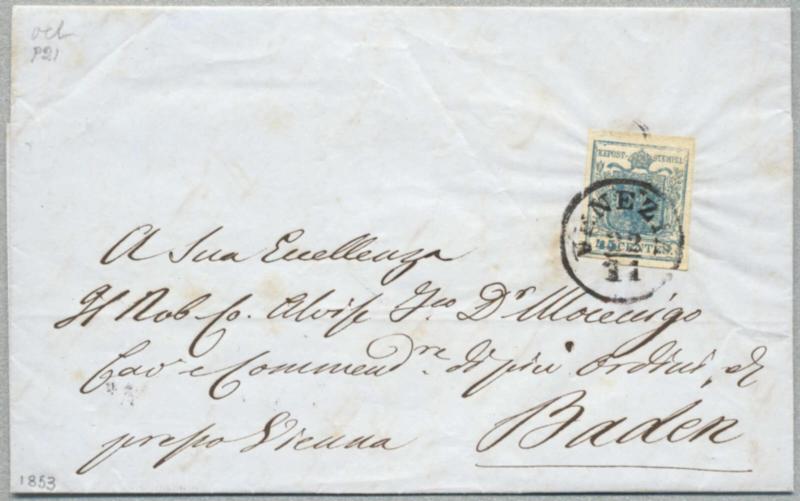 P21
KKPOST-STEMPEL
VENEZIA
11
45 CENTES.
A Sua Eccellenza
Il Nob Co. Alvise Fco Dr Mocenigo
Cav e Commendre di più Ordini, &
presso Vienna
Baden
1853